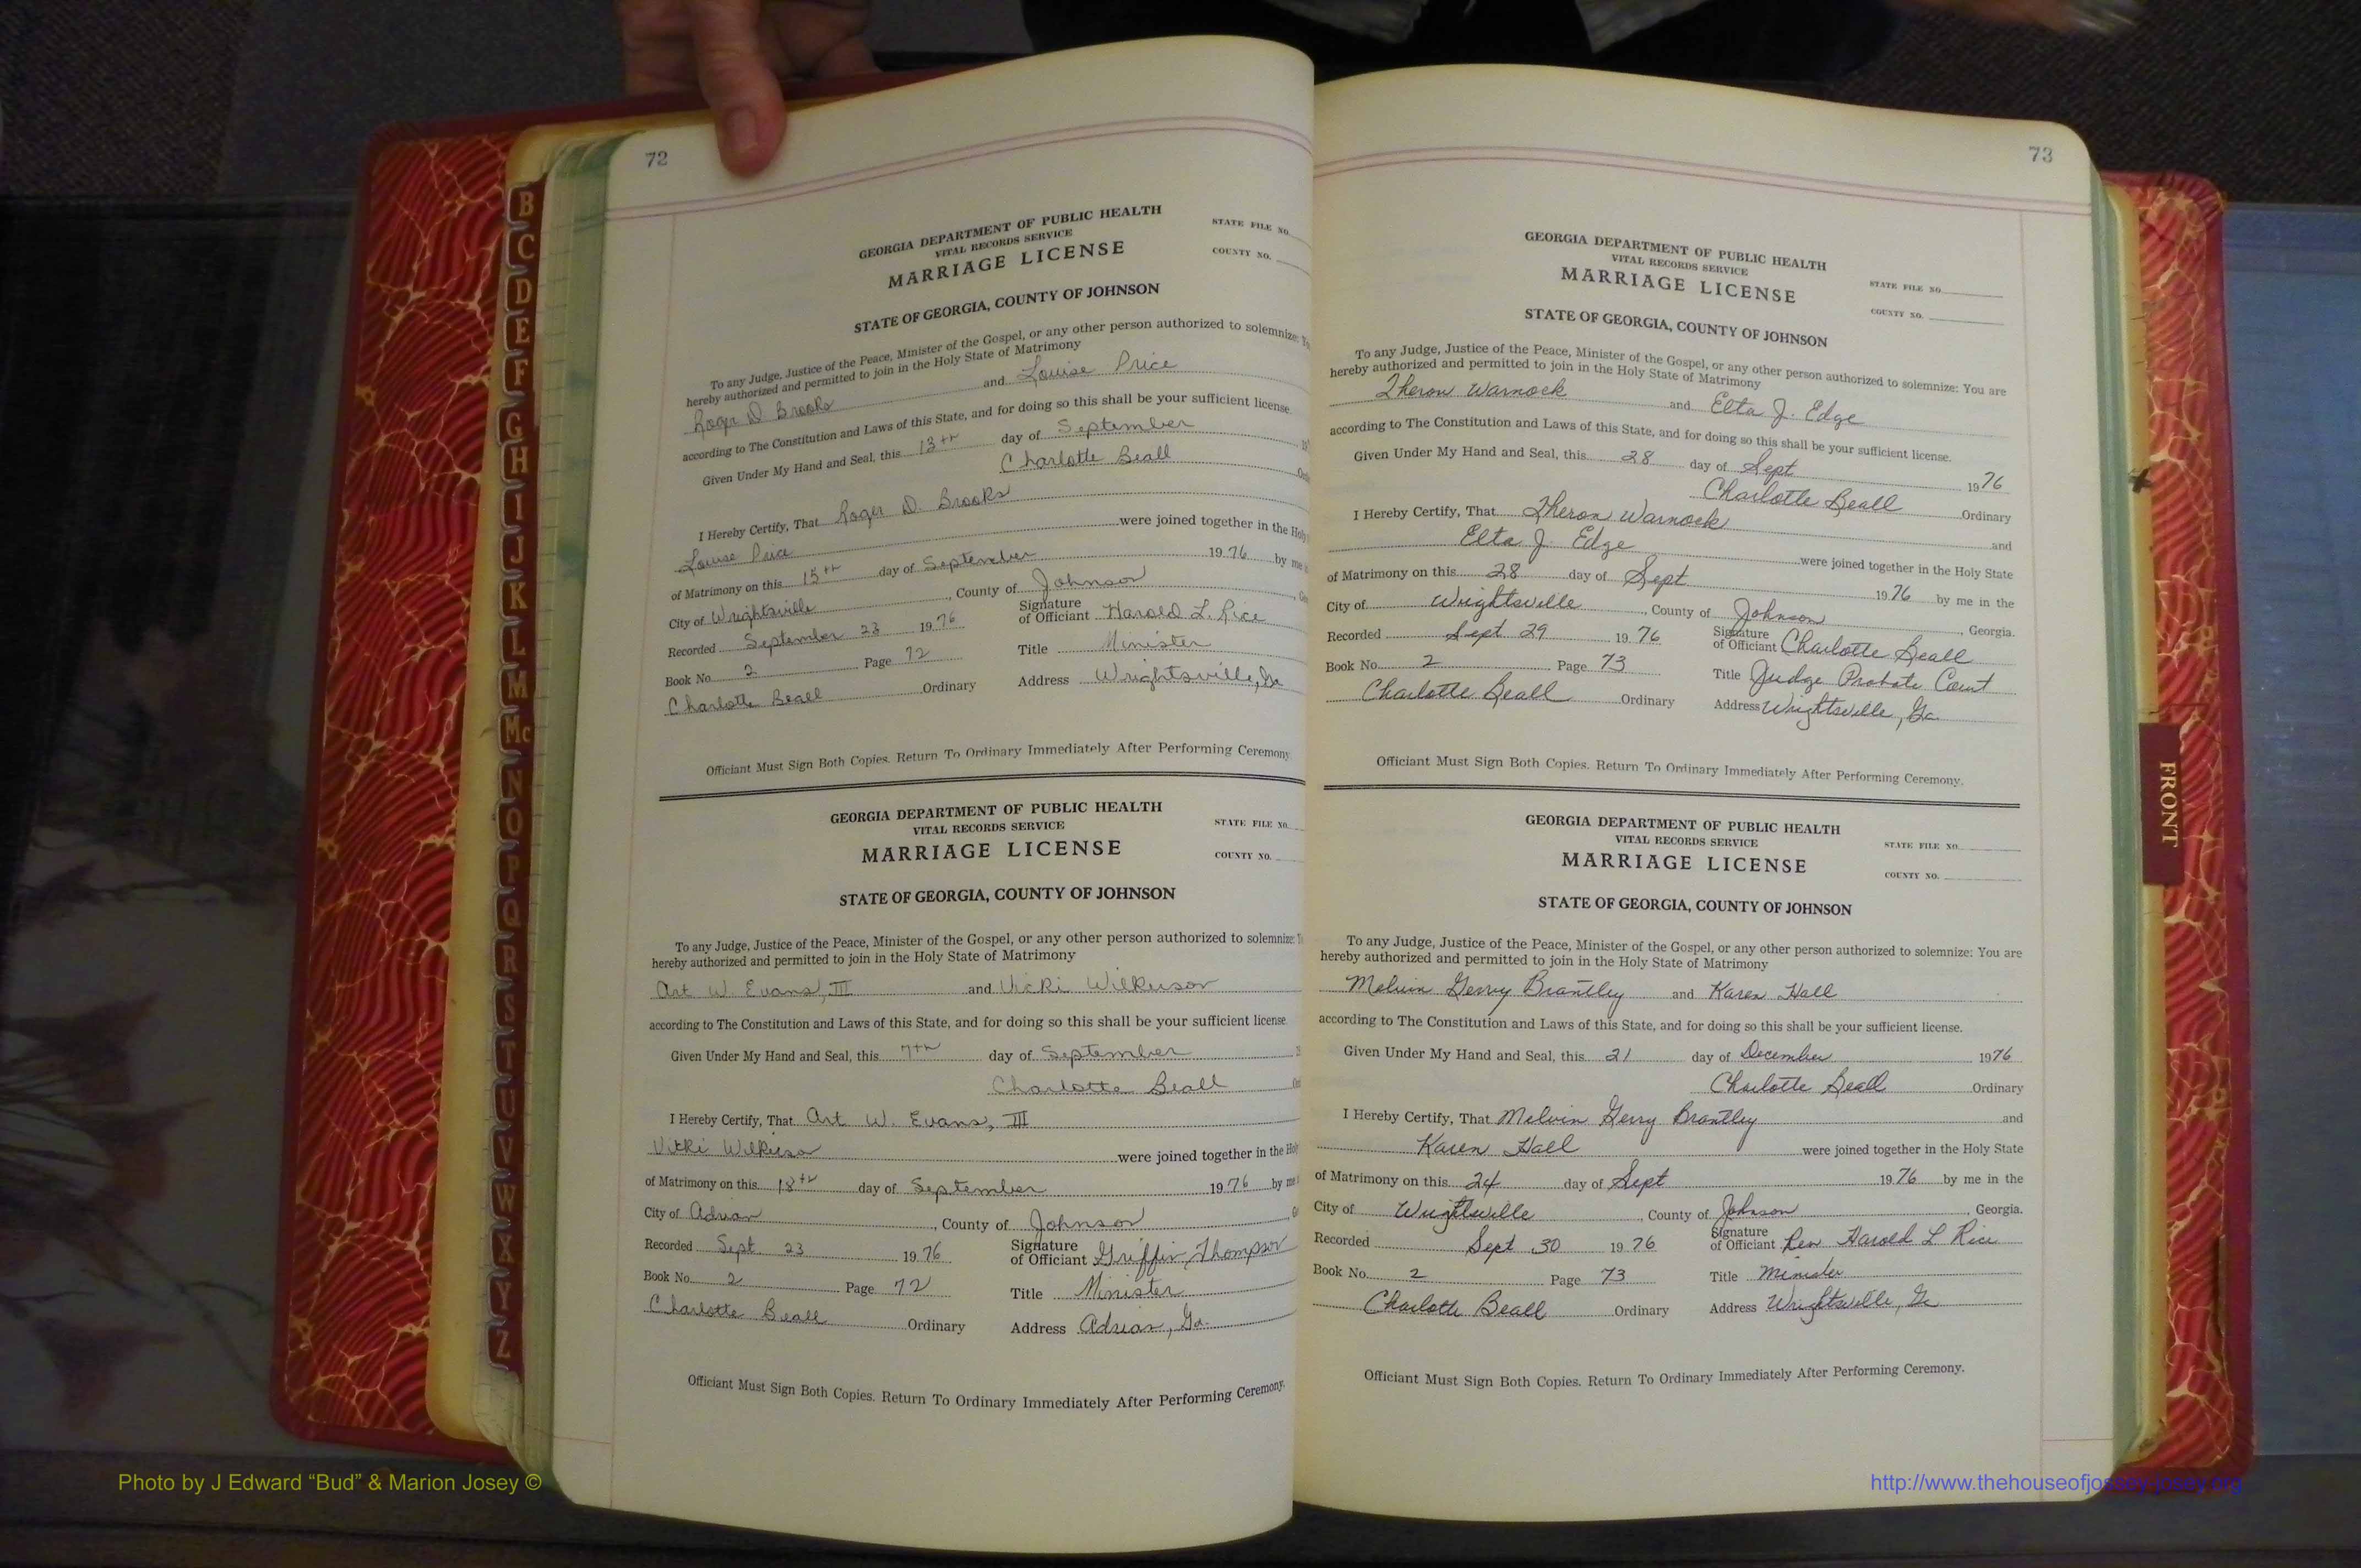 72
GEORGIA DEPARTMENT OF PUBLIC HEALTH
VITAL RECORDS SERVICE
MARRIAGE LICENSE
STATE FILE NO.
COUNTY NO.
STATE OF GEORGIA, COUNTY OF JOHNSON
To any Judge, Justice of the Peace, Minister of the Gospel, or any other person authorized to solemnize:
hereby authorized and permitted to join in the Holy State of Matrimony
Roger D. Brooks and Louise Price
according to The Constitution and Laws of this State, and for doing so this shall be your sufficient license.
Given Under My Hand and Seal, this 13th day of September
Charlotte Beall
I Hereby Certify, That Roger D. Brooks
Louise Price were joined together in the Holy
of Matrimony on this 15th day of September 1976 by me
City of Wrightsville, County of Johnson
Recorded September 23 1976 Signature of Officiant Harold L. Rice
Book No. 2 Page 72 Title Minister
Charlotte Beall Ordinary Address Wrightsville, Ga
Officiant Must Sign Both Copies. Return To Ordinary Immediately After Performing Ceremony
GEORGIA DEPARTMENT OF PUBLIC HEALTH
VITAL RECORDS SERVICE
MARRIAGE LICENSE
STATE FILE NO.
COUNTY NO.
STATE OF GEORGIA, COUNTY OF JOHNSON
To any Judge, Justice of the Peace, Minister of the Gospel, or any other person authorized to solemnize:
hereby authorized and permitted to join in the Holy State of Matrimony
Art W. Evans, III and Vicki Wilkerson
according to The Constitution and Laws of this State, and for doing so this shall be your sufficient license.
Given Under My Hand and Seal, this 7th day of September
Charlotte Beall
I Hereby Certify, That Art W. Evans, III
Vicki Wilkerson were joined together in the
of Matrimony on this 18th day of September 1976 by me
City of Adrian, County of Johnson
Recorded Sept 23 1976 Signature of Officiant Griffin Thompson
Book No. 2 Page 72 Title Minister
Charlotte Beall Ordinary Address Adrian, Ga.
Officiant Must Sign Both Copies. Return To Ordinary Immediately After Performing Ceremony.
73
GEORGIA DEPARTMENT OF PUBLIC HEALTH
VITAL RECORDS SERVICE
MARRIAGE LICENSE
STATE FILE NO.
COUNTY NO.
STATE OF GEORGIA, COUNTY OF JOHNSON
To any Judge, Justice of the Peace, Minister of the Gospel, or any other person authorized to solemnize: You are
hereby authorized and permitted to join in the Holy State of Matrimony
Theron Warnock and Elta J. Edge
according to The Constitution and Laws of this State, and for doing so this shall be your sufficient license.
Given Under My Hand and Seal, this 28 day of Sept 1976
Charlotte Beall Ordinary
I Hereby Certify, That Theron Warnock and
Elta J. Edge were joined together in the Holy State
of Matrimony on this 28 day of Sept 1976 by me in the
City of Wrightsville, County of Johnson, Georgia.
Recorded Sept 29 1976 Signature of Officiant Charlotte Beall
Book No. 2 Page 73 Title Judge Probate Court
Charlotte Beall Ordinary Address Wrightsville, Ga.
Officiant Must Sign Both Copies. Return To Ordinary Immediately After Performing Ceremony.
GEORGIA DEPARTMENT OF PUBLIC HEALTH
VITAL RECORDS SERVICE
MARRIAGE LICENSE
STATE FILE NO.
COUNTY NO.
STATE OF GEORGIA, COUNTY OF JOHNSON
To any Judge, Justice of the Peace, Minister of the Gospel, or any other person authorized to solemnize: You are
hereby authorized and permitted to join in the Holy State of Matrimony
Melvin Gerry Brantley and Karen Hall
according to The Constitution and Laws of this State, and for doing so this shall be your sufficient license.
Given Under My Hand and Seal, this 21 day of December 1976
Charlotte Beall Ordinary
I Hereby Certify, That Melvin Gerry Brantley and
Karen Hall were joined together in the Holy State
of Matrimony on this 24 day of Sept 1976 by me in the
City of Wrightsville, County of Johnson, Georgia.
Recorded Sept 30 1976 Signature of Officiant Rev Harold L Rice
Book No. 2 Page 73 Title Minister
Charlotte Beall Ordinary Address Wrightsville, Ga
Officiant Must Sign Both Copies. Return To Ordinary Immediately After Performing Ceremony.
B
C
D
E
F
G
H
I
J
K
L
M
Mc
N
O
P
Q
R
S
T
U
V
W
X
Y
Z
FRONT
Photo by J Edward “Bud” & Marion Josey ©
http://www.thehouseofjossey-josey.org